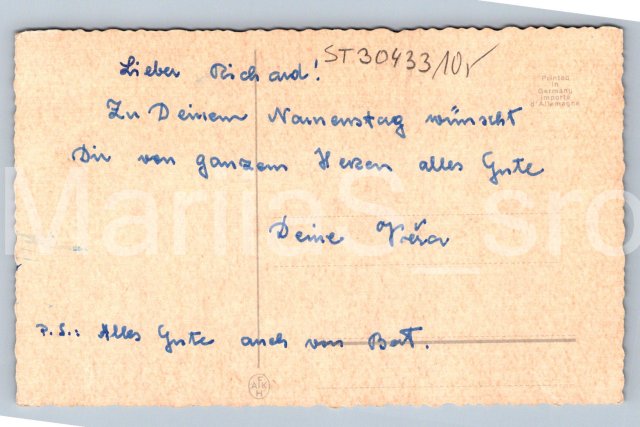 ST30433/10,-
Lieber Richard!
Printed
in
Germany
Importé
d'Allemagne
Zu Deinem Namenstag wünscht
Dir von ganzem Herzen alles Gute
MarijaS_sro
Deine Věra
P.S.: Alles Gute auch von Bert.
AFKH